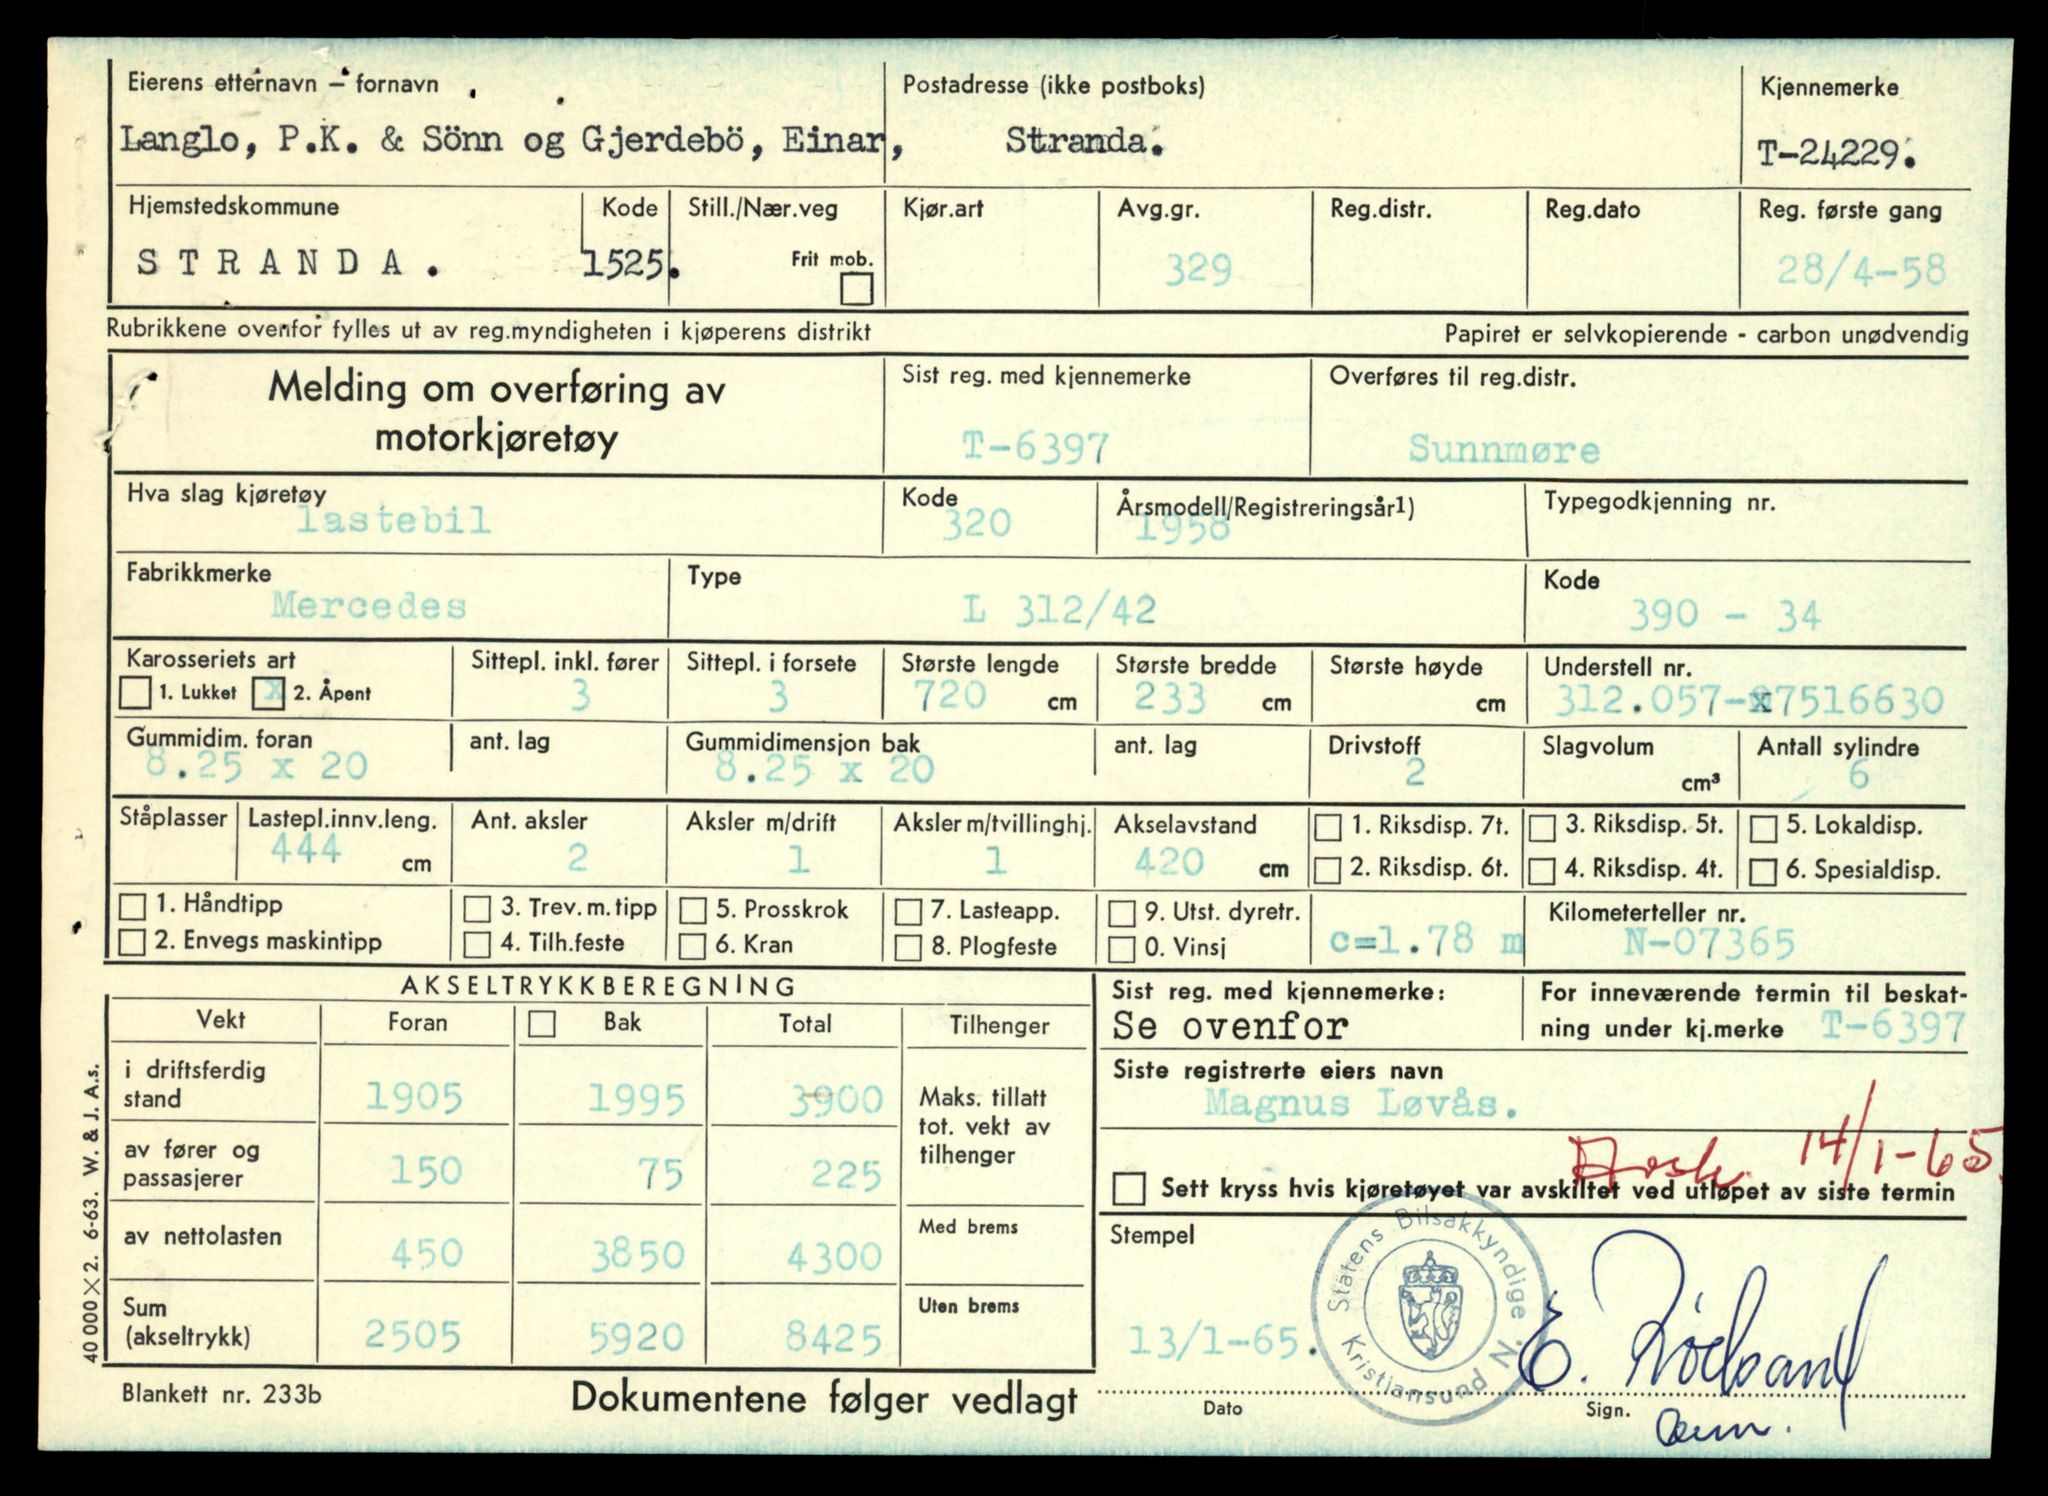 Eierens etternavn – fornavn
Postadresse (ikke postboks)
Kjennemerke
Langlo, P.K. & Sönn og Gjerdebö, Einar, Stranda.
T-24229.
Hjemstedskommune
Kode
Still./Nær.veg
Kjør.art
Avg.gr.
Reg.distr.
Reg.dato
Reg. første gang
STRANDA.
1525.
Frit mob.
329
28/4-58
Rubrikkene ovenfor fylles ut av reg.myndigheten i kjøperens distrikt
Papiret er selvkopierende - carbon unødvendig
Melding om overføring av
motorkjøretøy
Sist reg. med kjennemerke
Overføres til reg.distr.
T-6397
Sunnmøre
Hva slag kjøretøy
Kode
Årsmodell/Registreringsår1)
Typegodkjenning nr.
lastebil
320
1958
Fabrikkmerke
Type
Kode
Mercedes
L 312/42
390 - 34
Karosseriets art
Sittepl. inkl. fører
Sittepl. i forsete
Største lengde
Største bredde
Største høyde
Understell nr.
1. Lukket x 2. Åpent
3
3
720 cm
233 cm
cm
312.057-x7516630
Gummidim. foran
ant. lag
Gummidimensjon bak
ant. lag
Drivstoff
Slagvolum
Antall sylindre
8.25 x 20
8.25 x 20
2
cm³
6
Ståplasser
Lastepl.innv.leng.
Ant. aksler
Aksler m/drift
Aksler m/tvillinghj.
Akselavstand
1. Riksdisp. 7t.
3. Riksdisp. 5t.
5. Lokaldisp.
444 cm
2
1
1
420 cm
2. Riksdisp. 6t.
4. Riksdisp. 4t.
6. Spesialdisp.
1. Håndtipp
3. Trev.m.tipp
5. Prosskrok
7. Lasteapp.
9. Utst. dyretr.
Kilometerteller nr.
2. Envegs maskintipp
4. Tilh.feste
6. Kran
8. Plogfeste
0. Vinsj
c=1.78 m
N-07365
AKSELTRYKKBEREGNING
Sist reg. med kjennemerke:
Se ovenfor
For inneværende termin til beskat-
ning under kj.merke T-6397
Vekt
Foran
Bak
Total
Tilhenger
i driftsferdig
stand
1905
1995
3900
Maks. tillatt
tot. vekt av
tilhenger
Siste registrerte eiers navn
Magnus Løvås.
14/1-65.
av fører og
passasjerer
150
75
225
Sett kryss hvis kjøretøyet var avskiltet ved utløpet av siste termin
av nettolasten
450
3850
4300
Med brems
Stempel
Statens Bilsakkyndige
Kristiansund N.
Sum
(akseltrykk)
2505
5920
8425
Uten brems
13/1-65.
Dato
Sign.
Blankett nr. 233b
Dokumentene følger vedlagt
40 000 × 2. 6-63. W. & J. A.s.